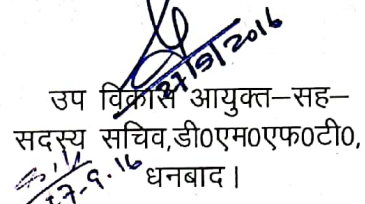 27/9/2016
उप विकास आयुक्त–सह–
सदस्य सचिव,डी0एम0एफ0टी0,
धनबाद।
27-9-16